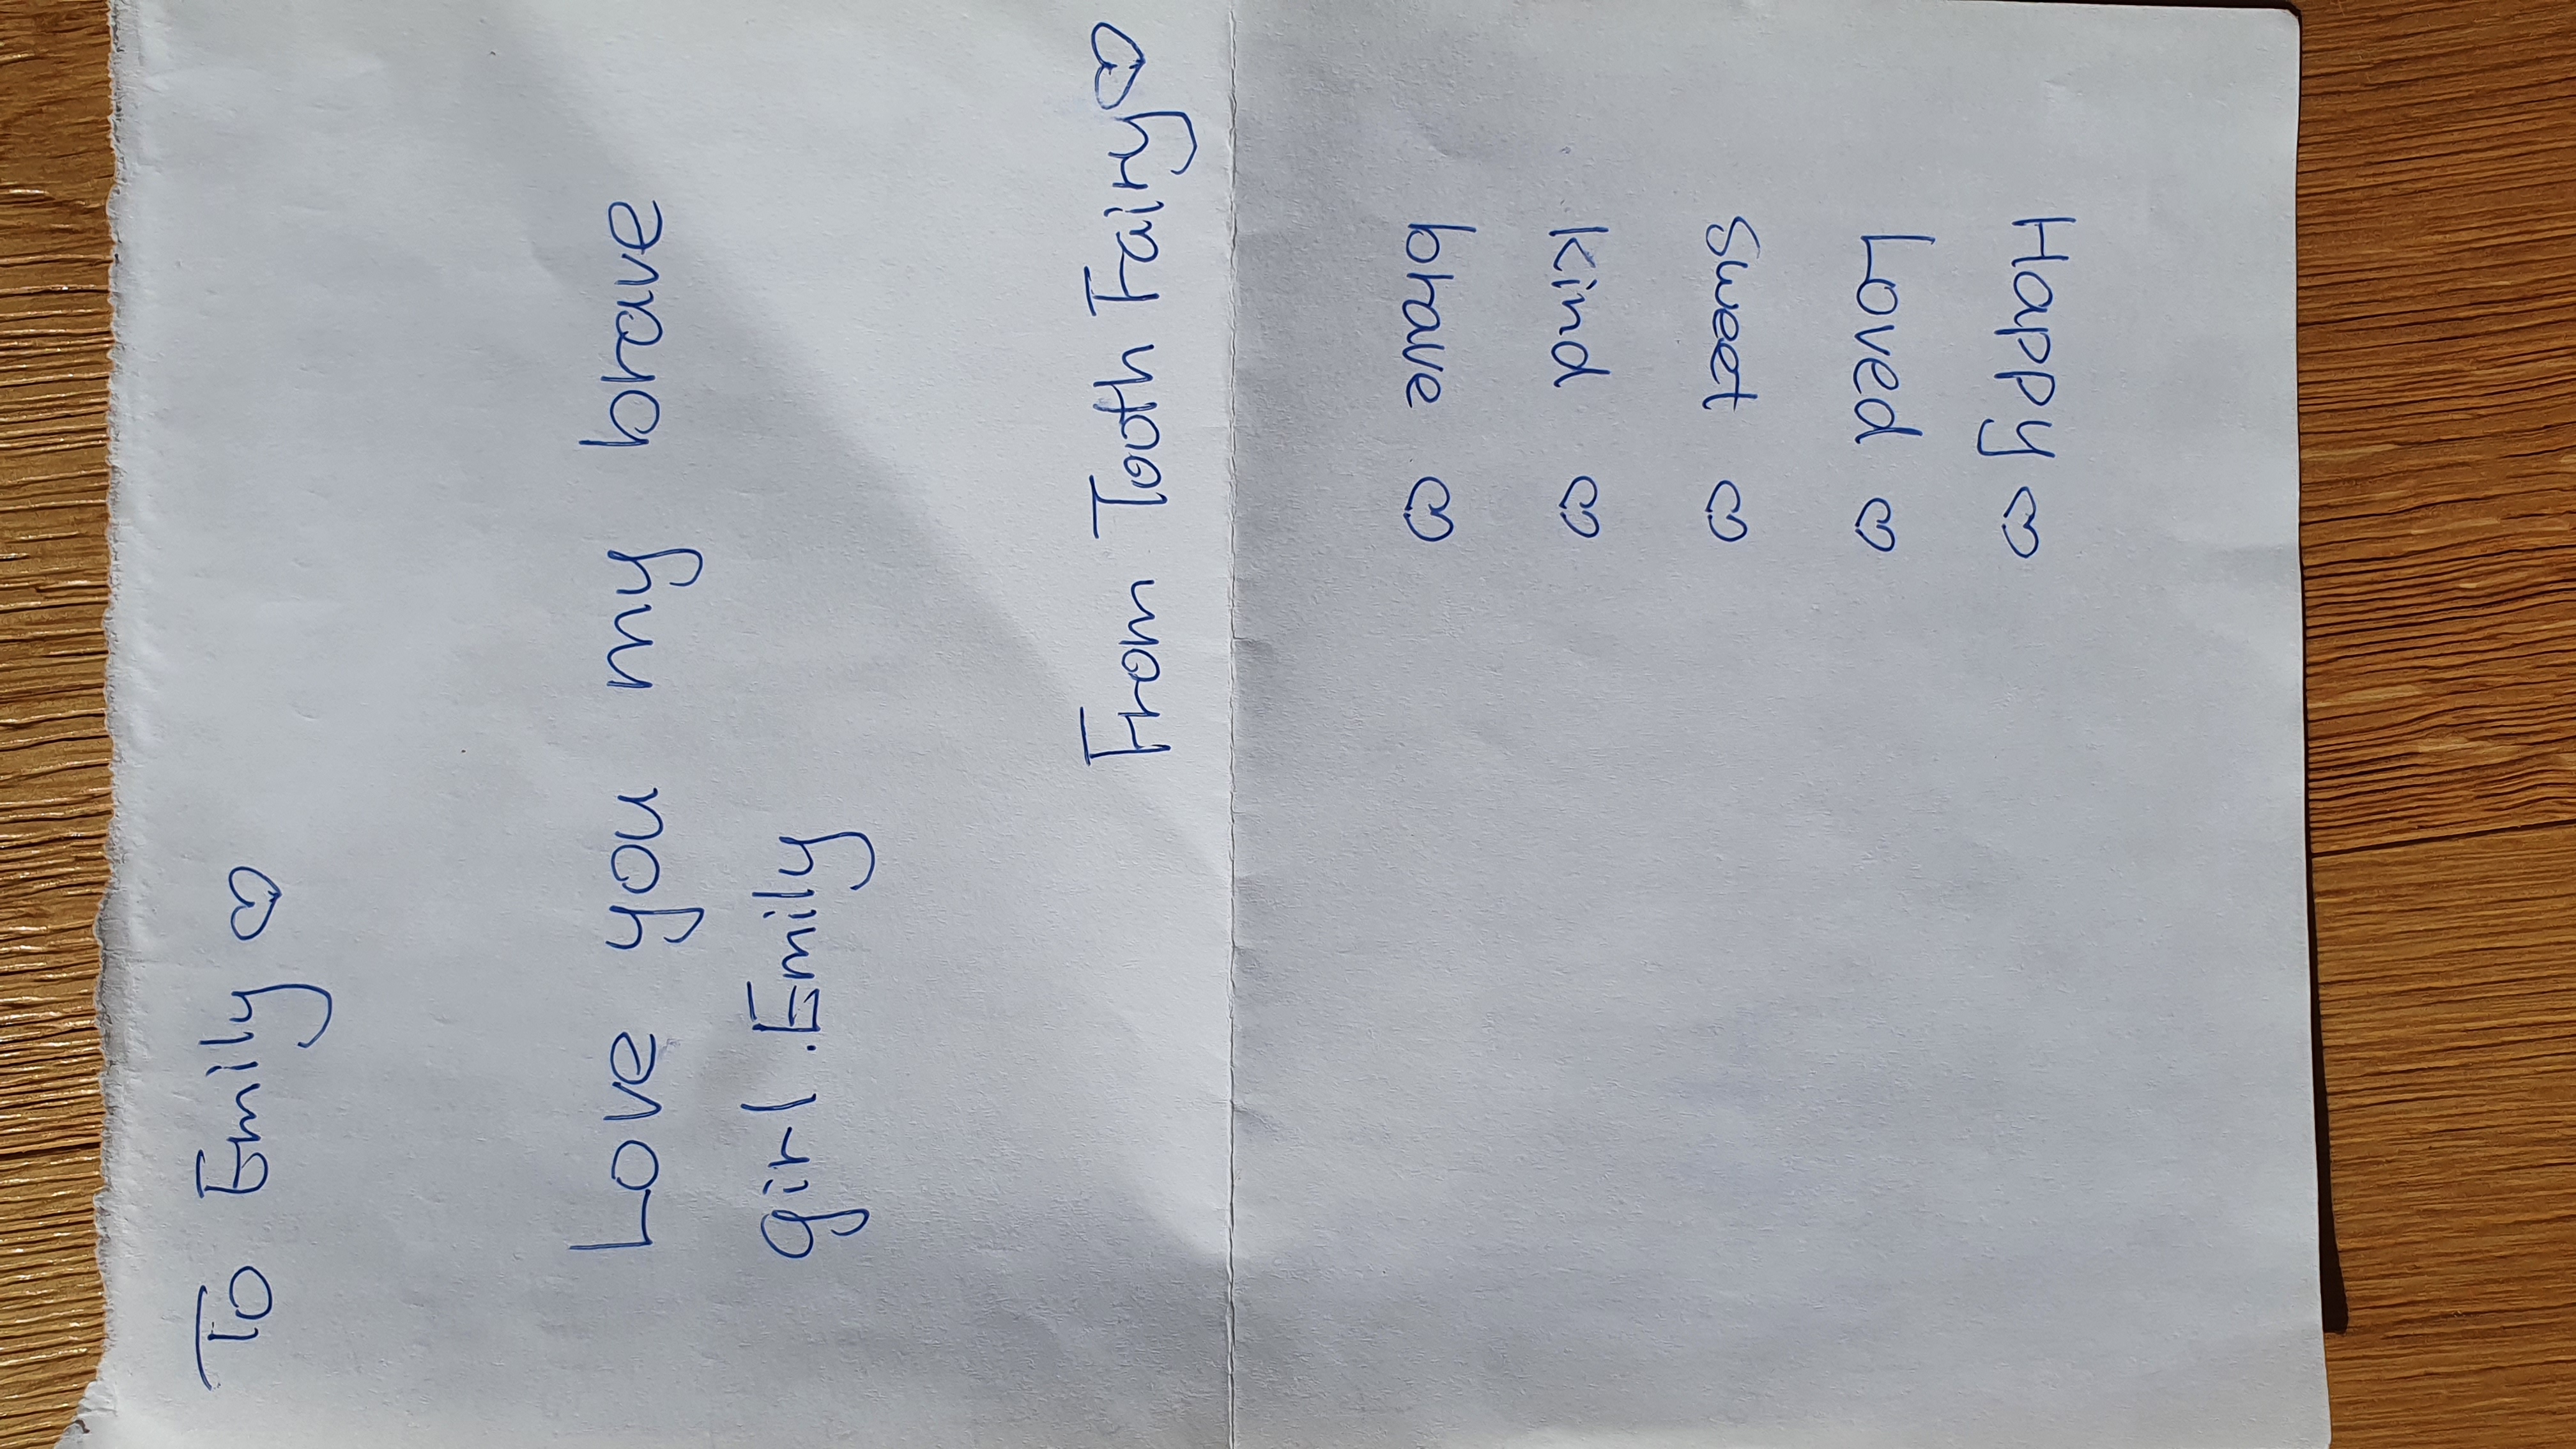 To Emily ♡
Love you my brave
girl .Emily
From Tooth Fairy♡
Happy ♡
Loved ♡
Sweet ♡
kind ♡
brave ♡